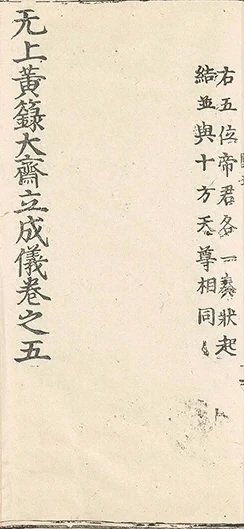 右五位帝君各一奏狀起
結並與十方天尊相同
无上黃籙大齋立成儀卷之五